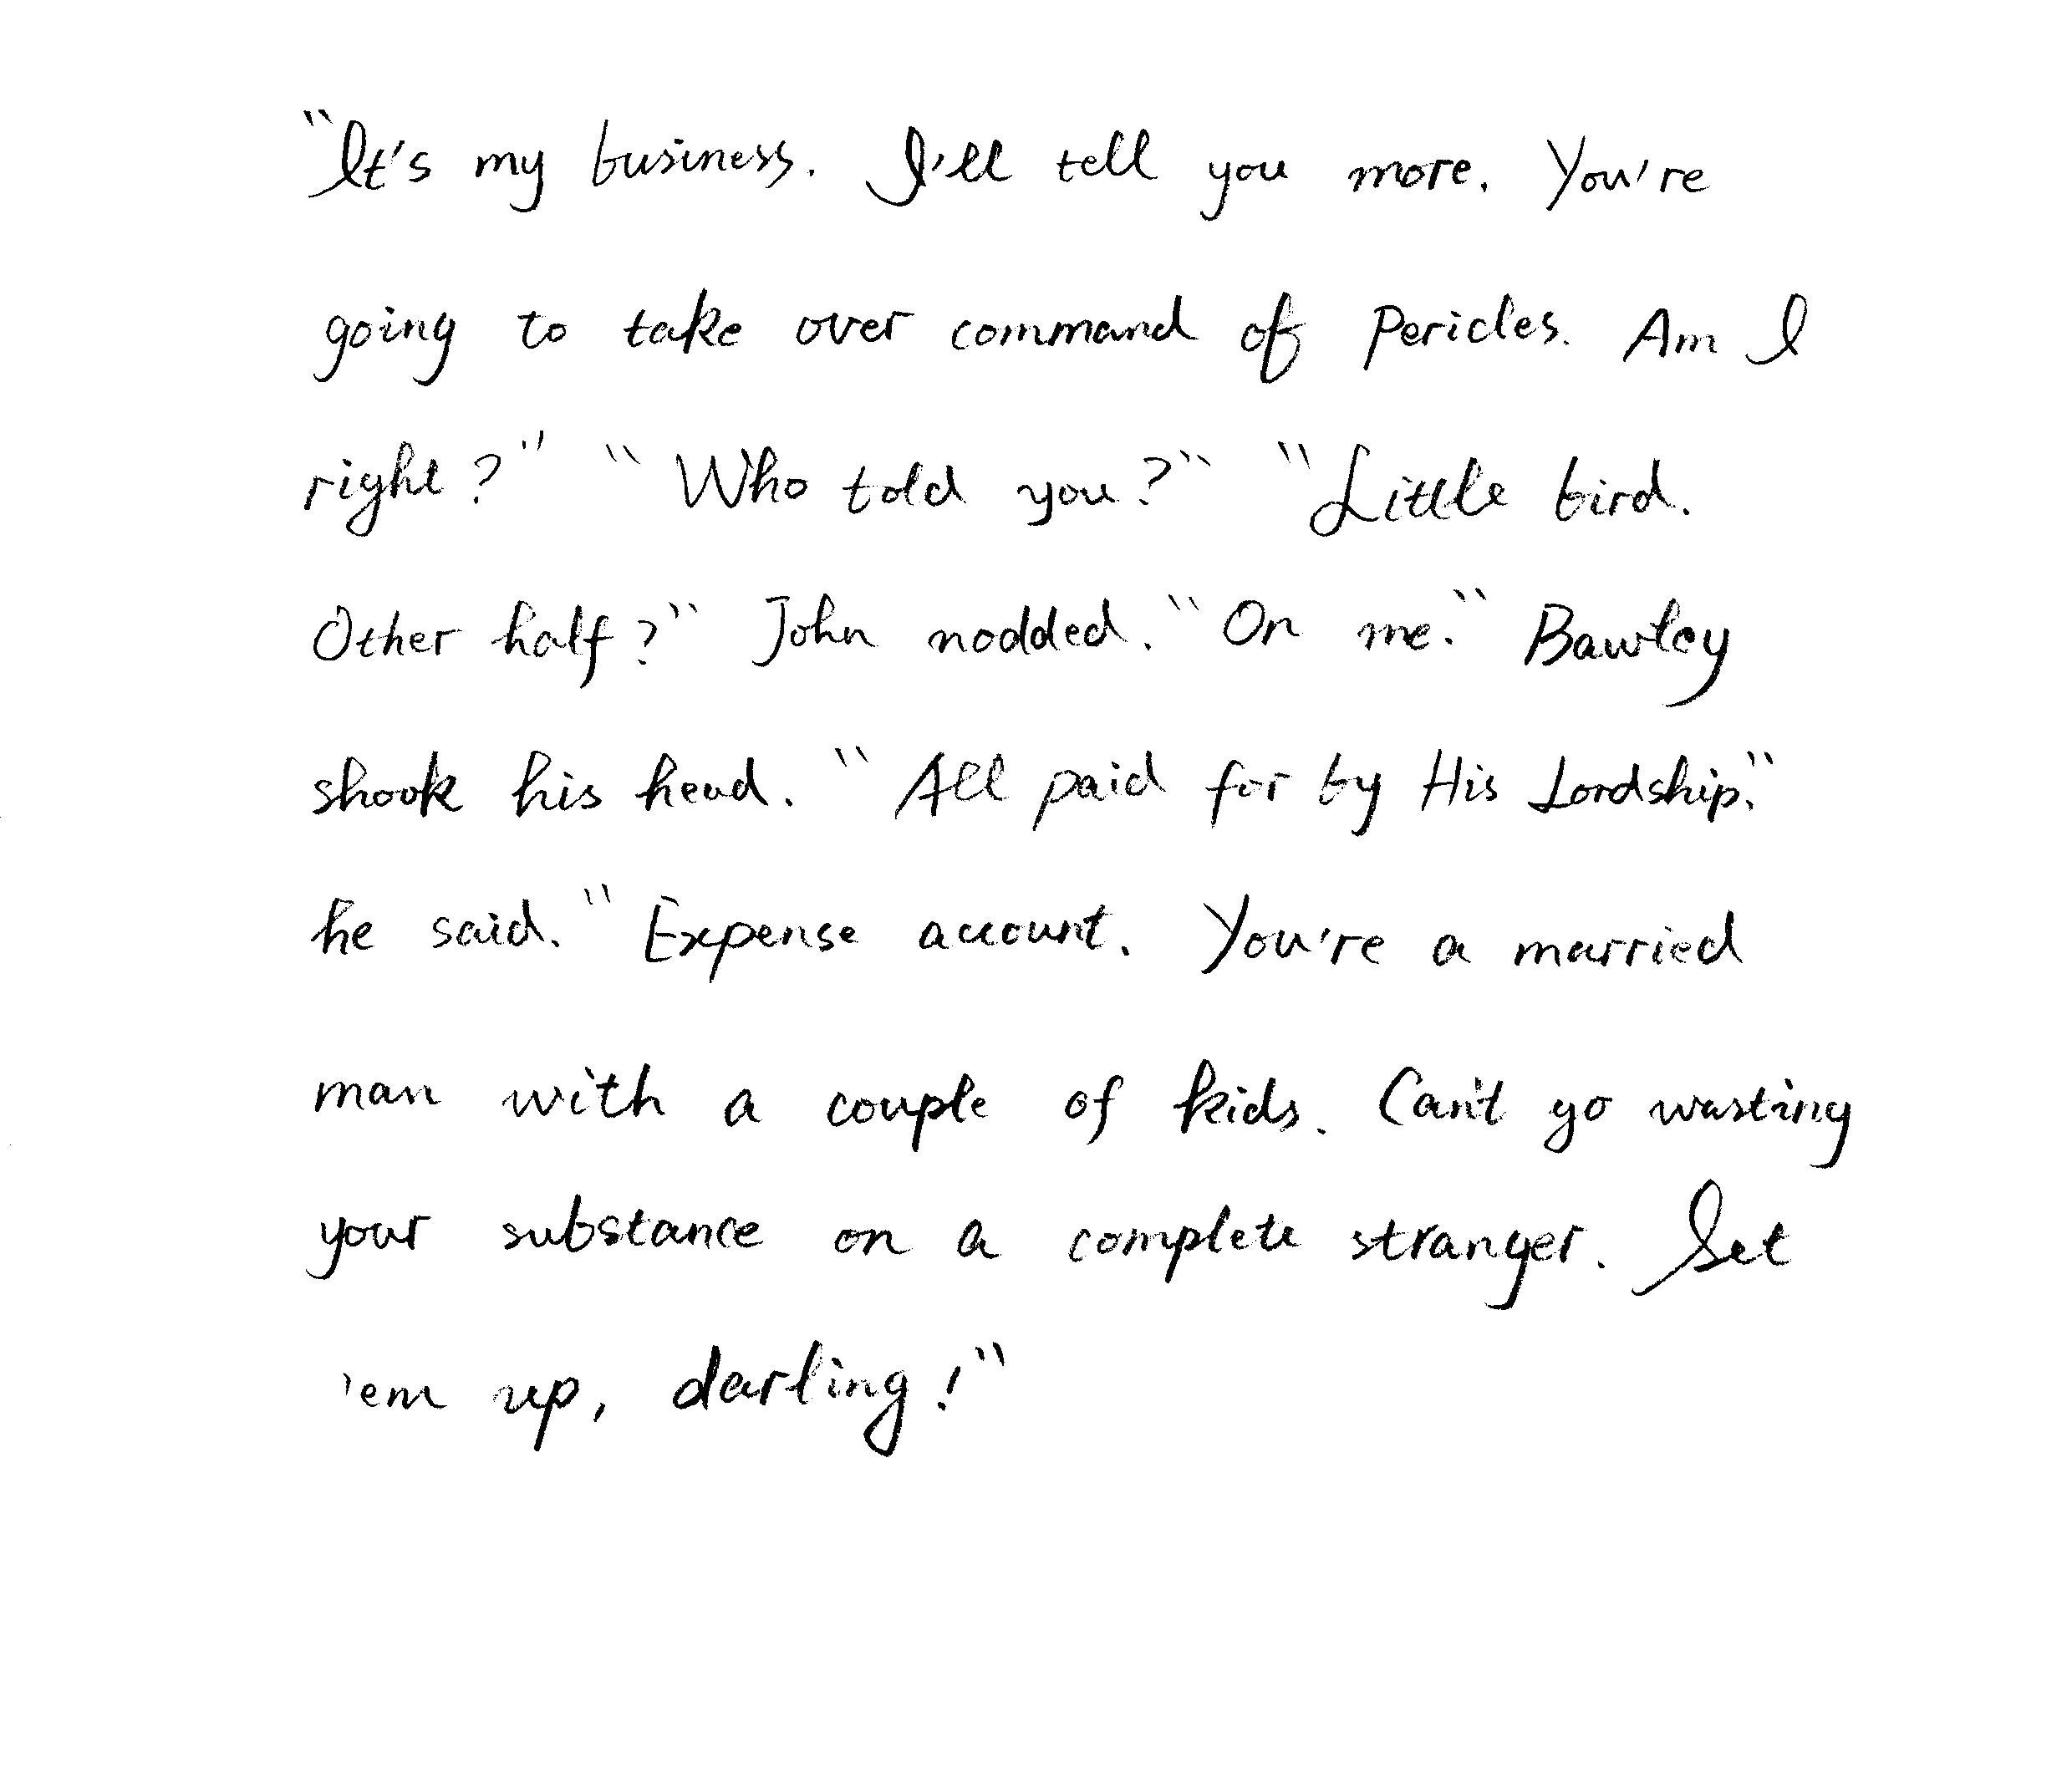 "It's my business. I'll tell you more. You're
going to take over command of Pericles. Am I
right?" "Who told you?" "Little bird.
Other half?" John nodded. "On me." Bawley
shook his head. "All paid for by His Lordship."
he said. "Expense account. You're a married
man with a couple of kids. Can't go wasting
your substance on a complete stranger. Set
'em up, darling!"